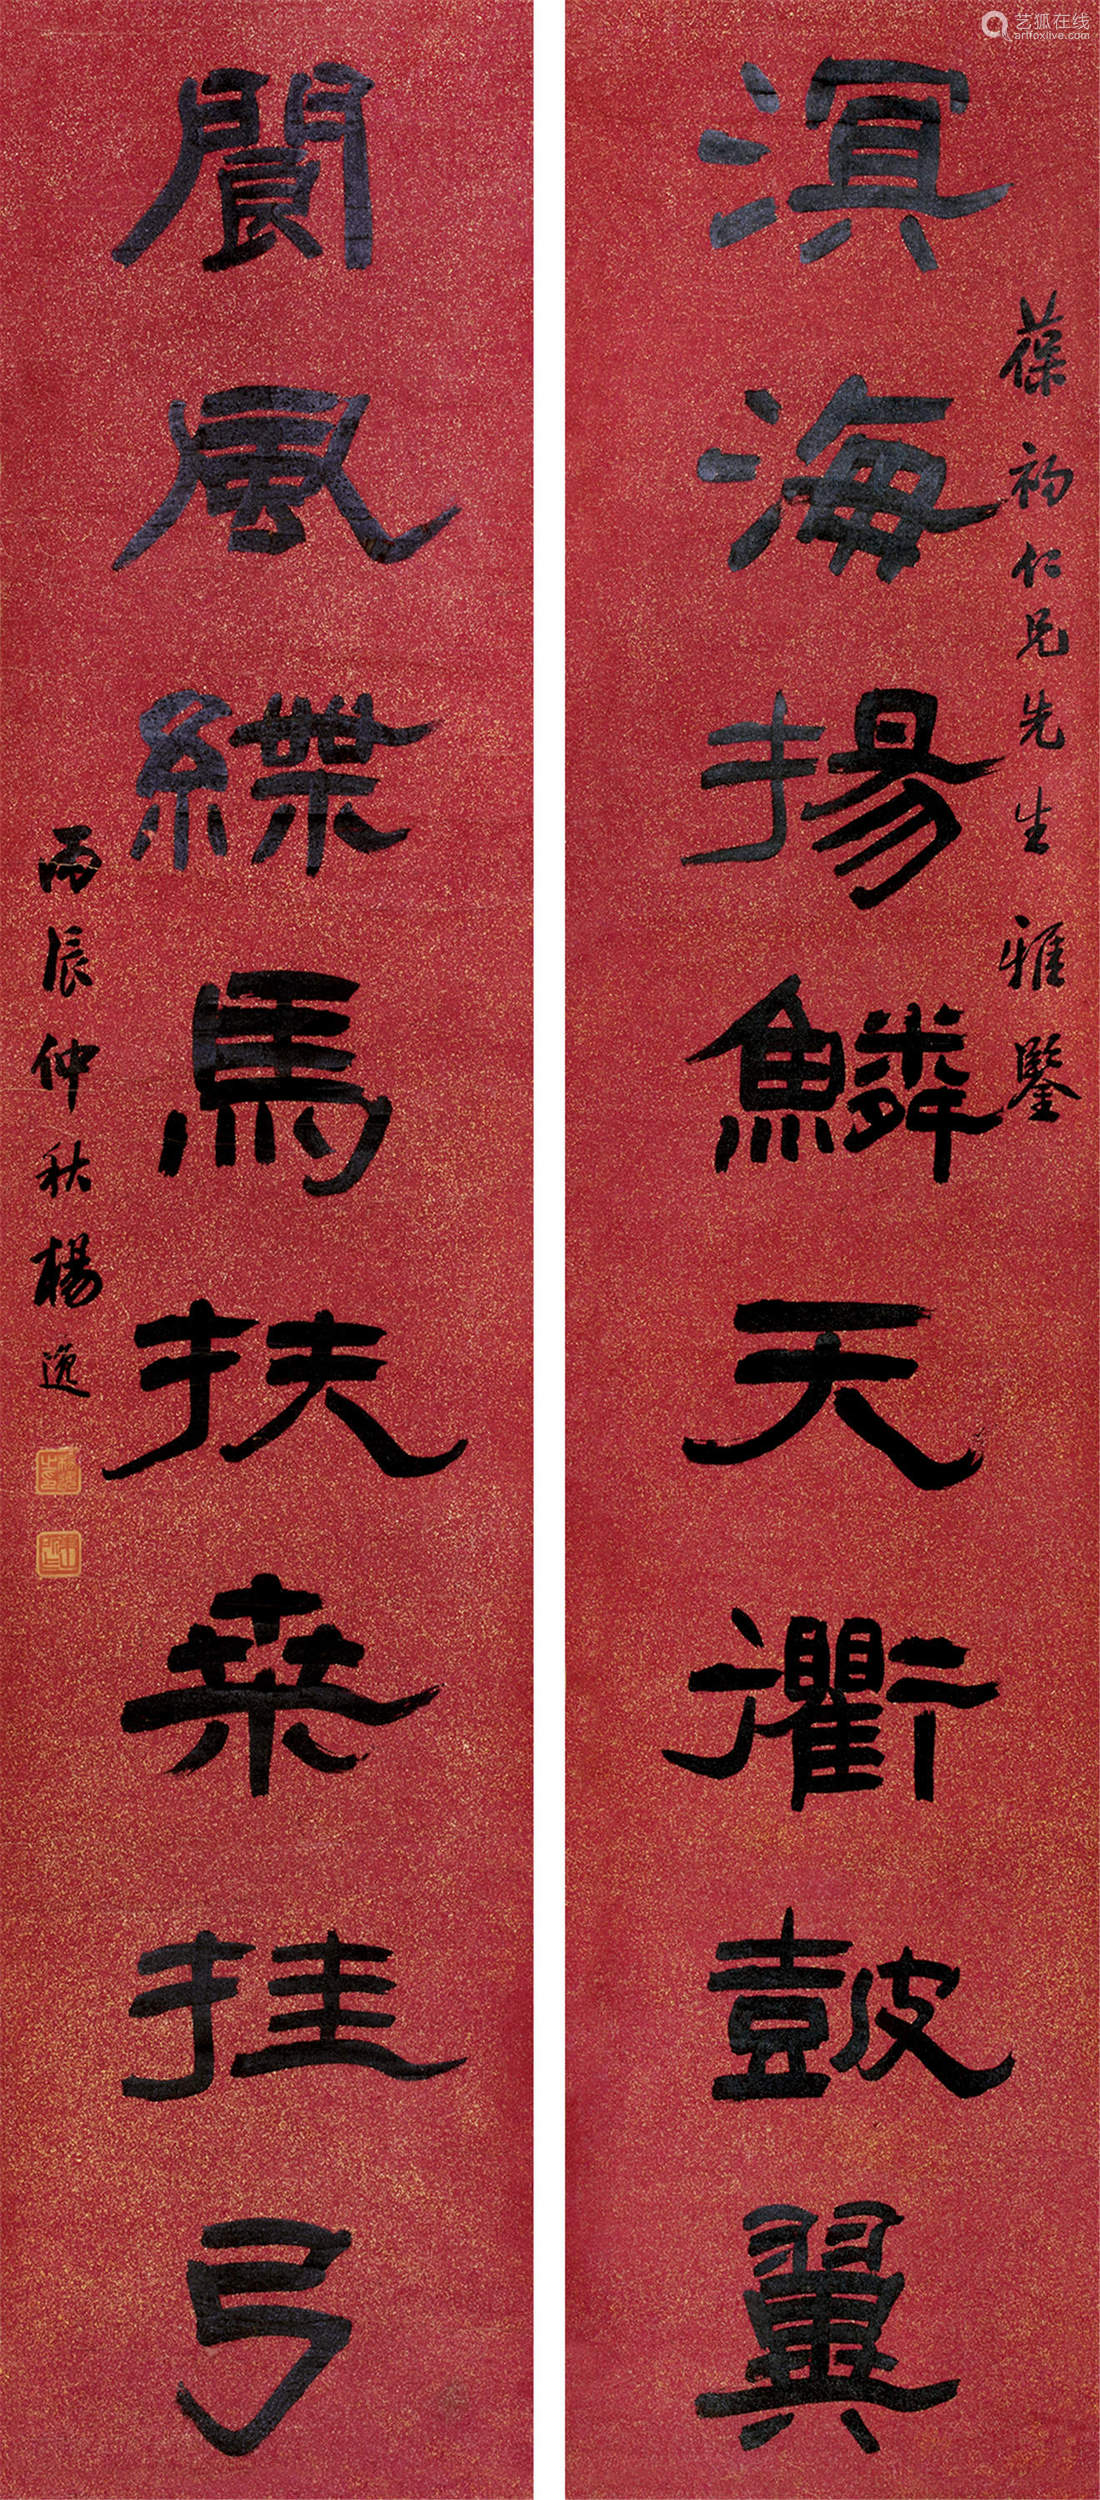 葆初仁兄先生雅鑒
溟海揚鱗天衢鼓翼
閬風緤馬扶桑挂弓
丙辰仲秋楊逸
艺狐在线
artfoxlive.com